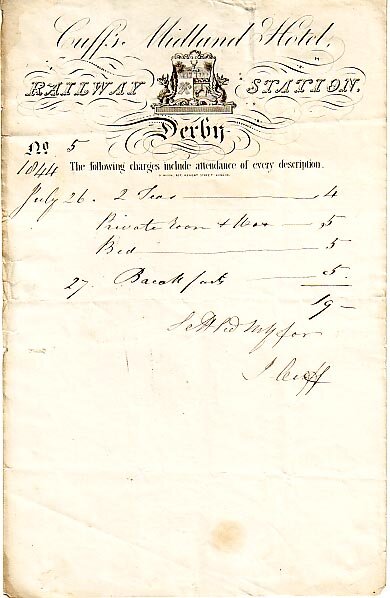 Cuff's Midland Hotel,
RAILWAY STATION.
Derby
No 5
1844 The following charges include attendance of every description.
July 26. 2 Teas 4
Private room & Wax 5
Bed 5
27. Breakfasts 5
19 -
Settled for
J Cuff